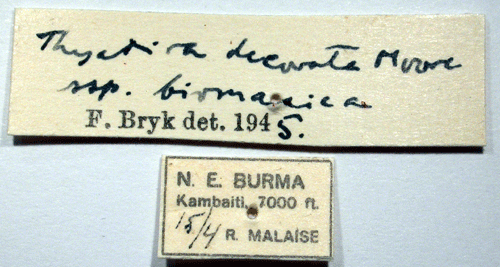 Thyatira decorata Moore
ssp. birmanica
F. Bryk det. 1945.
N. E. BURMA
Kambaiti, 7000 ft.
15/4 R. MALAISE